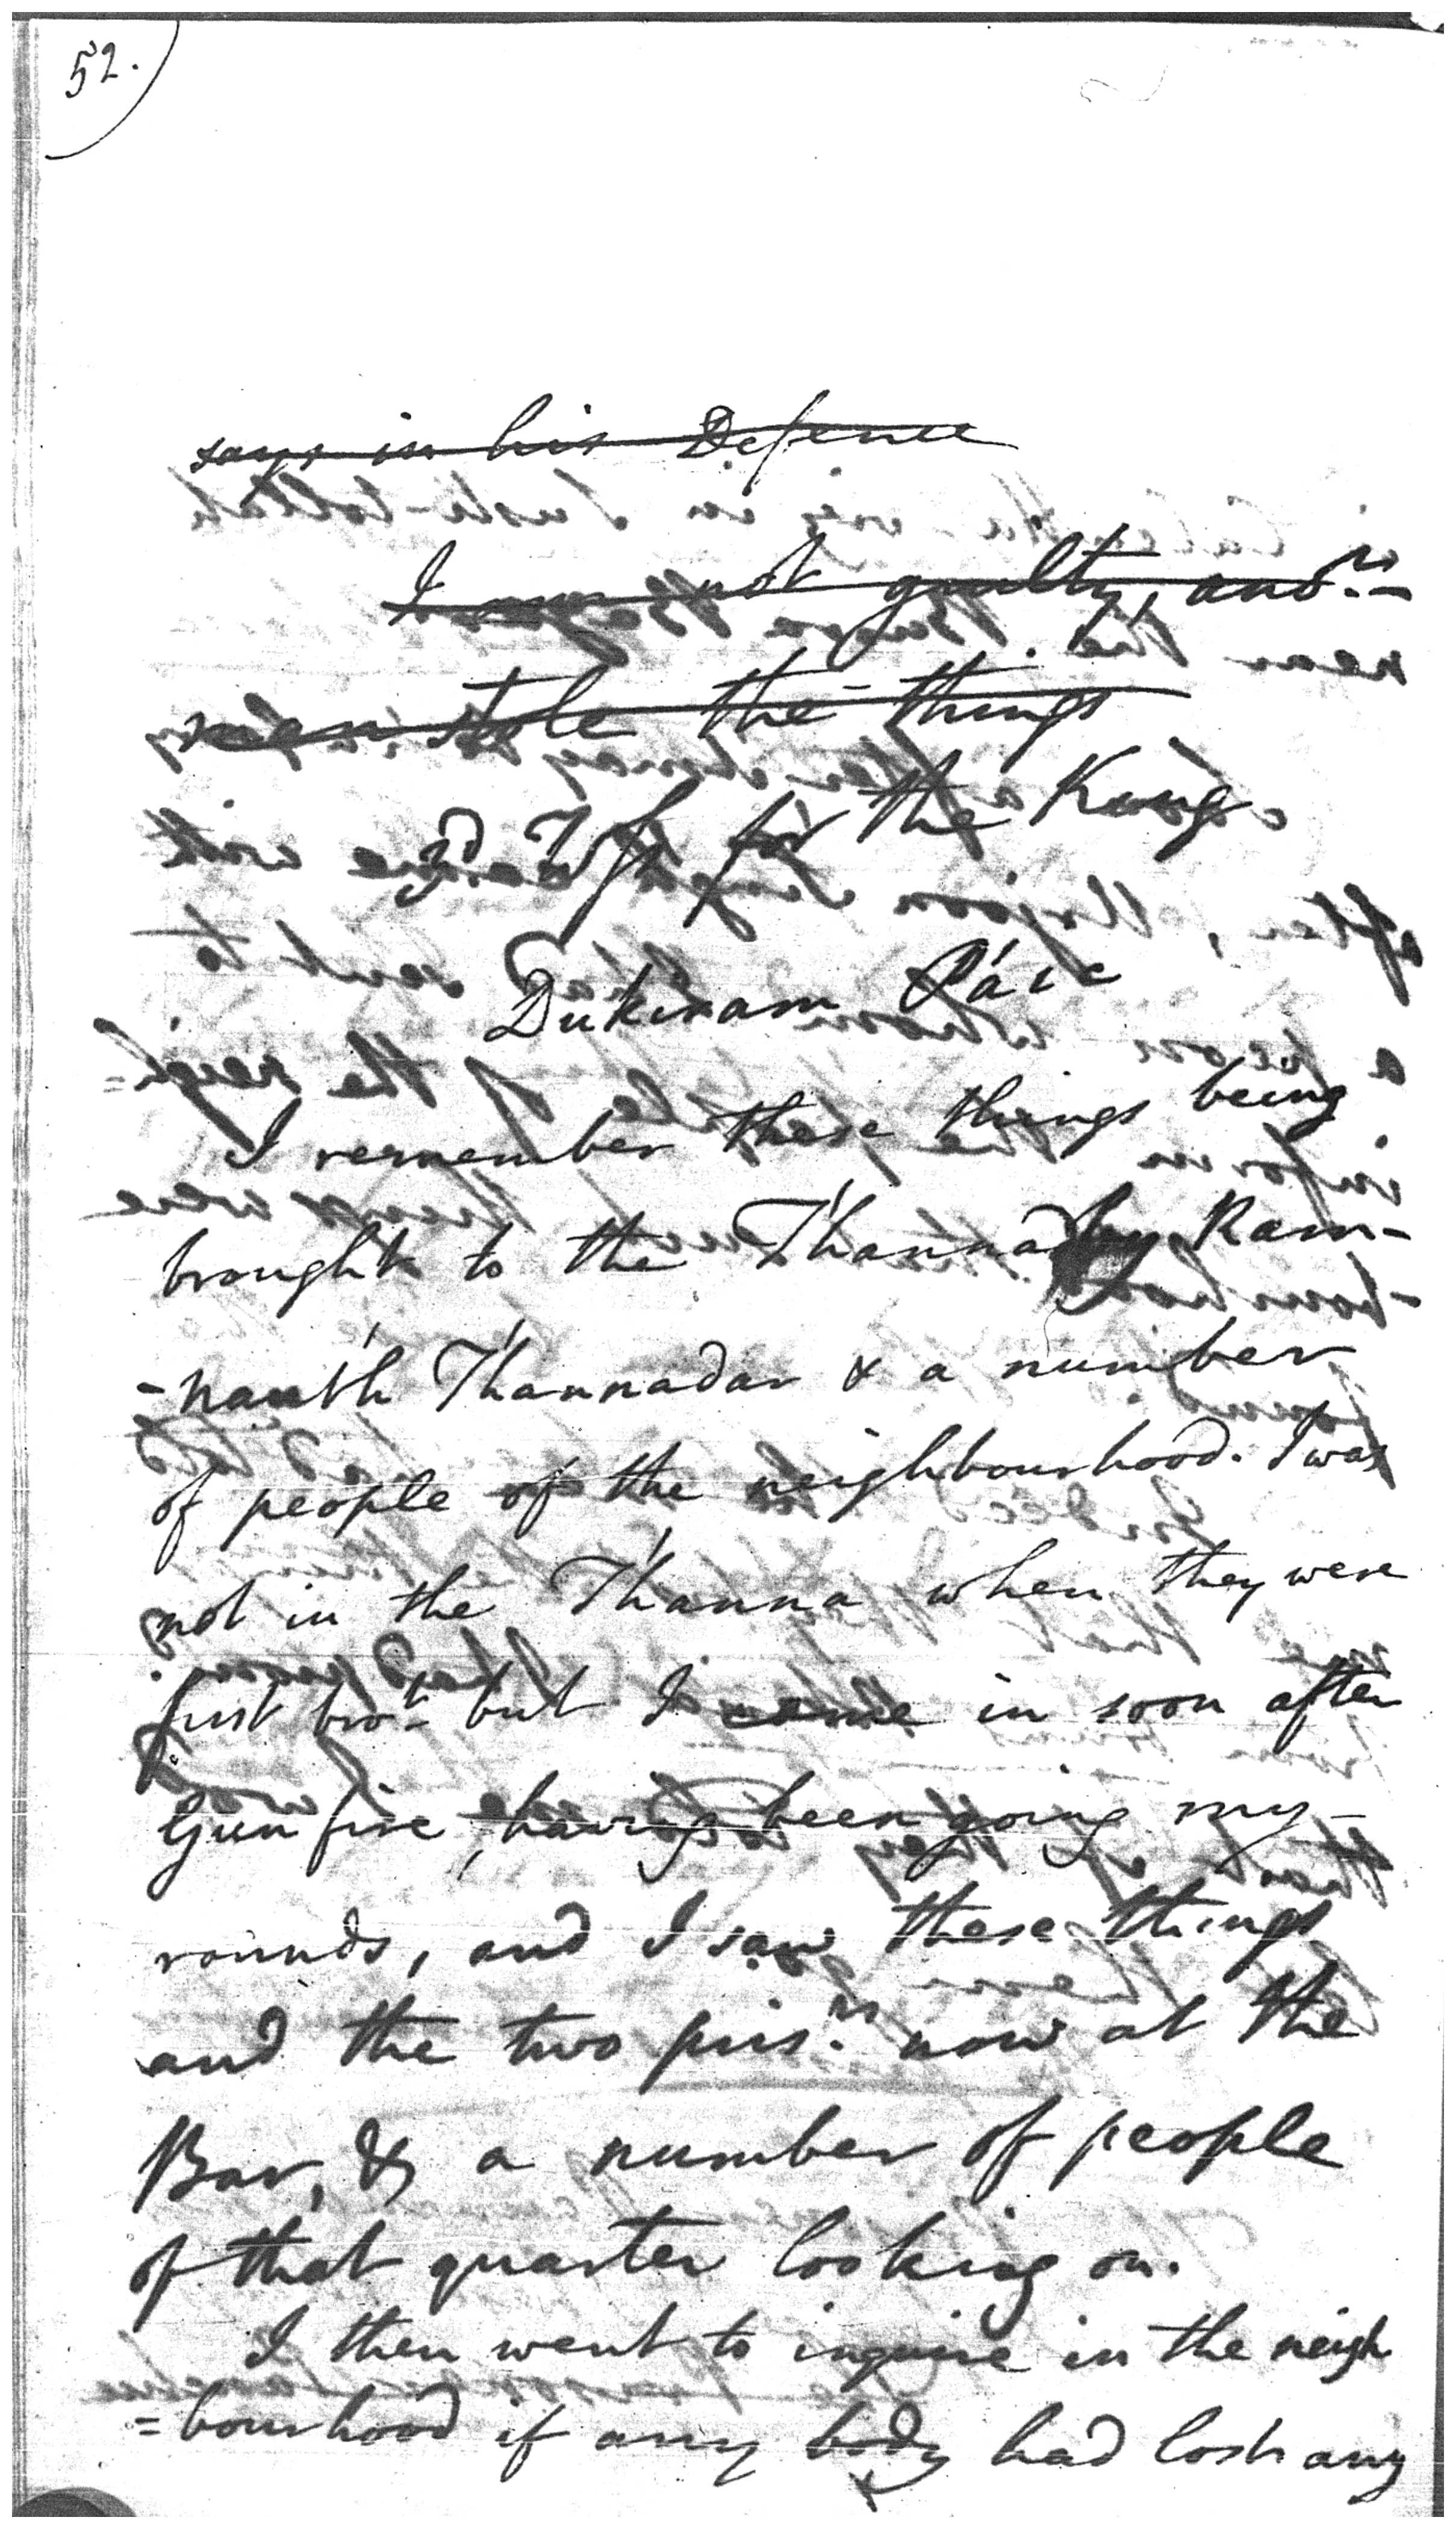 52.
says in his Defence
I am not guilty, anor.-
man stole the things
3d Wifs for the King
Dukiram Páic
I remember these things being
brought to the Thanna by Ram-
-nauth Thannadar & a number
of people of the neighbourhood. I was
not in the Thanna when they were
first brot. but I came in soon after
Gun fire, having been going my-
rounds, and I saw these things
and the two prisrs. now at the
Bar, & a number of people
of that quarter looking on.
I then went to inquire in the neigh
=bourhood if any body had lost any